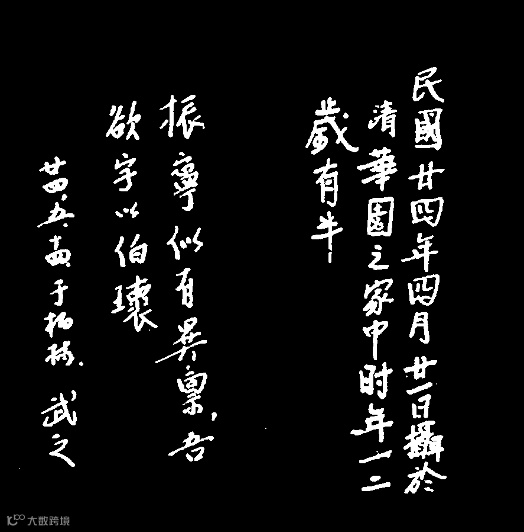 民國廿四年四月廿一日攝於
清華園之家中時年一二
歲有半
振寧似有異禀,吾
欲字以伯瓌
廿四、五、十四、于柏林、武之
大数跨境